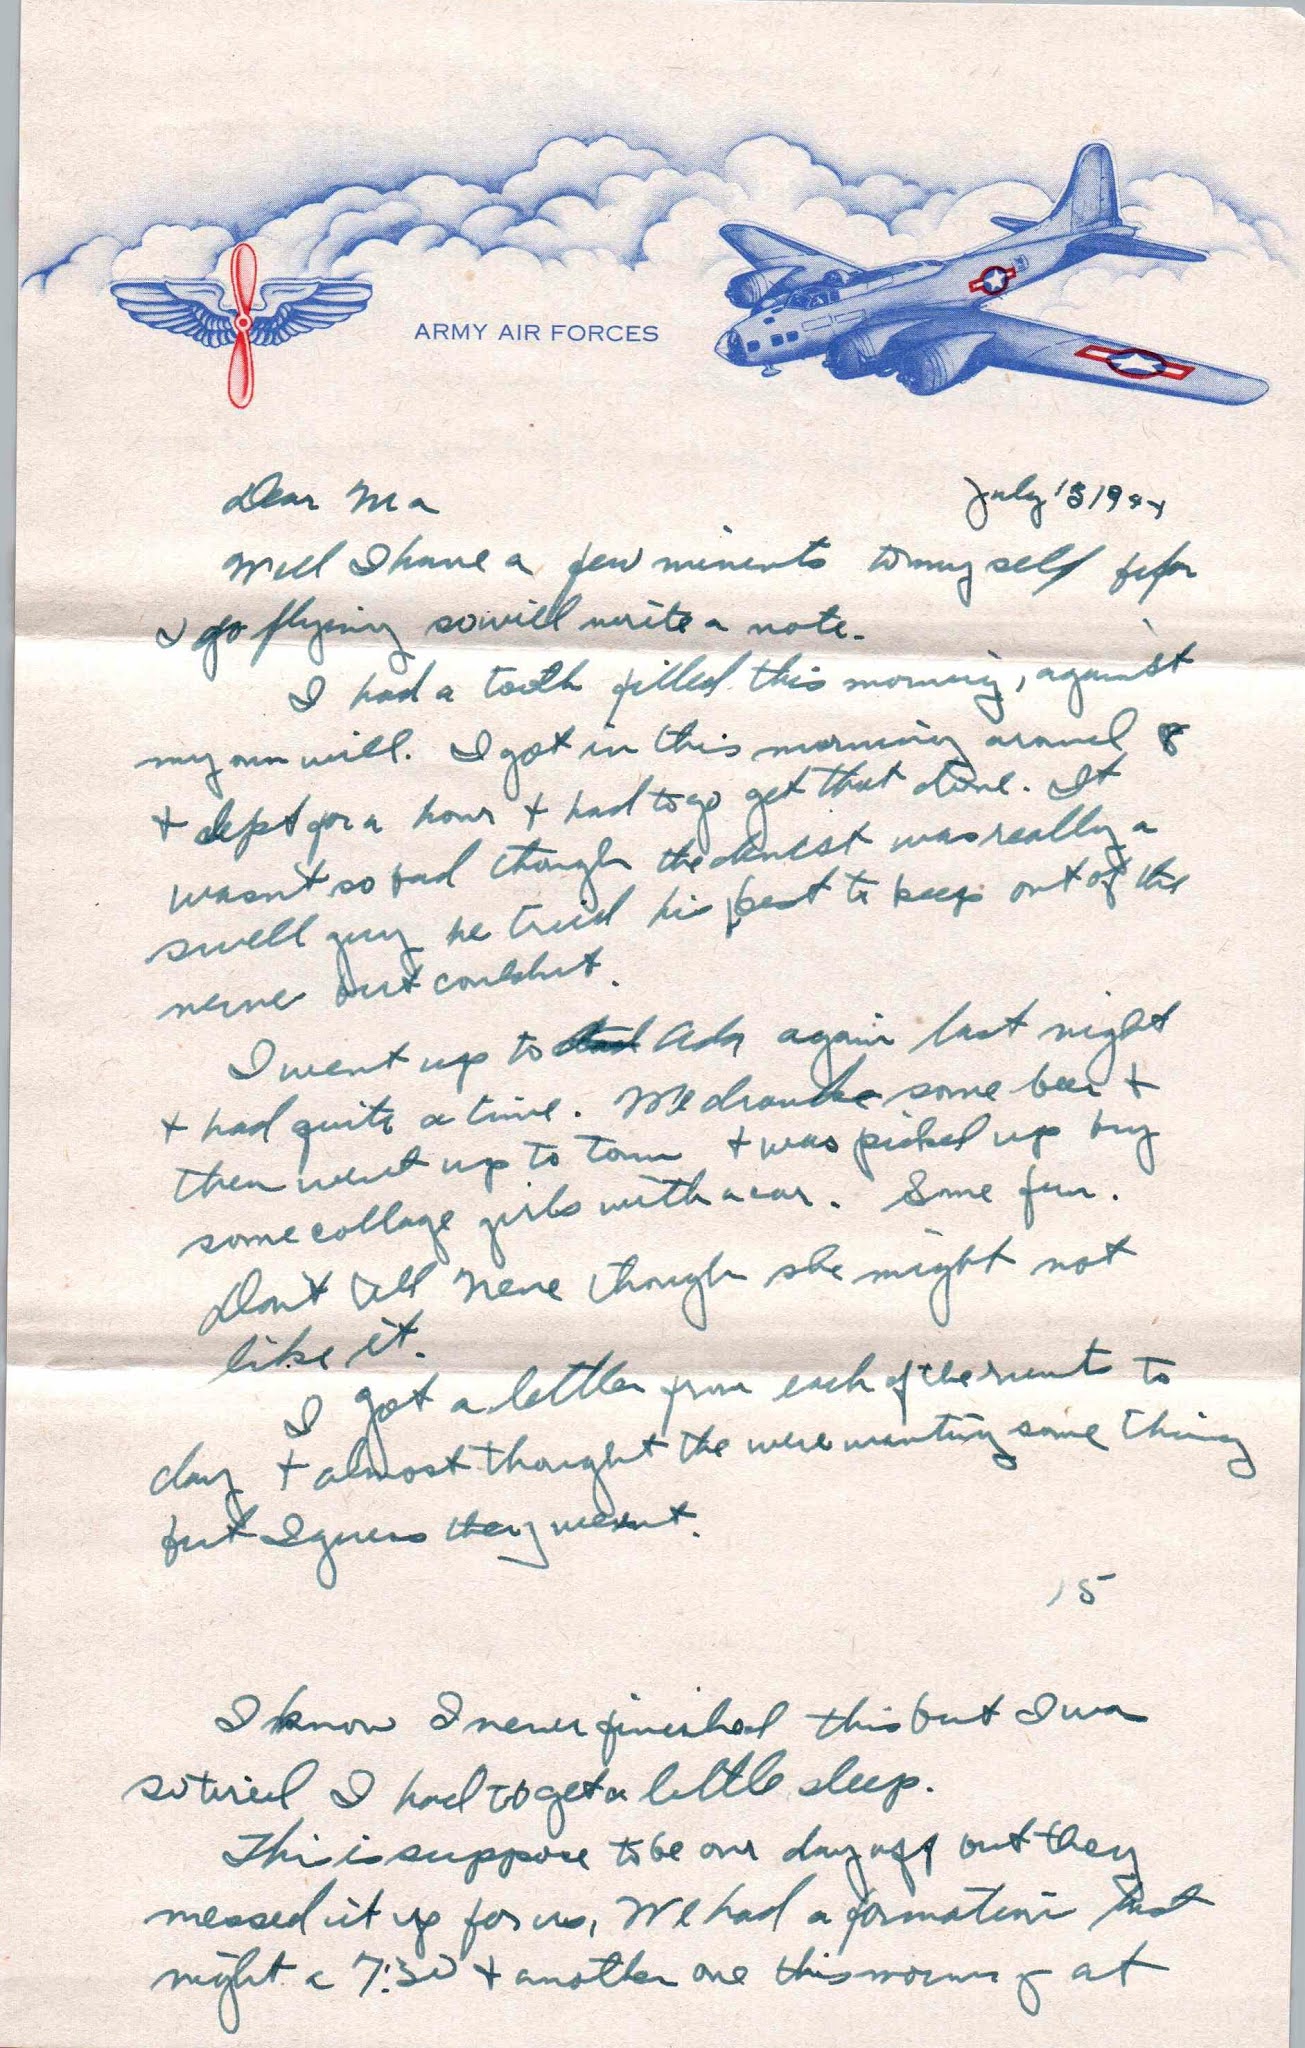 ARMY AIR FORCES
Dear Ma
July 13 1944
Well I have a few minents to my self befor
I go flying so will write a note.
I had a tooth filled this morning, against
my own will. I got in this morning around 8
+ slept for a hour + had to go get that done. It
wasn't so bad though the denist was really a
swell guy he tried his best to keep out of the
nerve but couldnt.
I went up to Ada again last night
+ had quite a time. We drank some beer +
then went up to town + was picked up by
some collage girls with a car. Some fun.
Don't tell Nene though she might not
like it.
I got a letter from each of the runts to
day + almost thought the were wanting some thing
but I guess they wernt.
15
I know I never finished this but I was
so tired I had to get a little sleep.
This is suppose to be our day off but they
messed it up for us, We had a formation last
night a 7:30 + another one this morning at